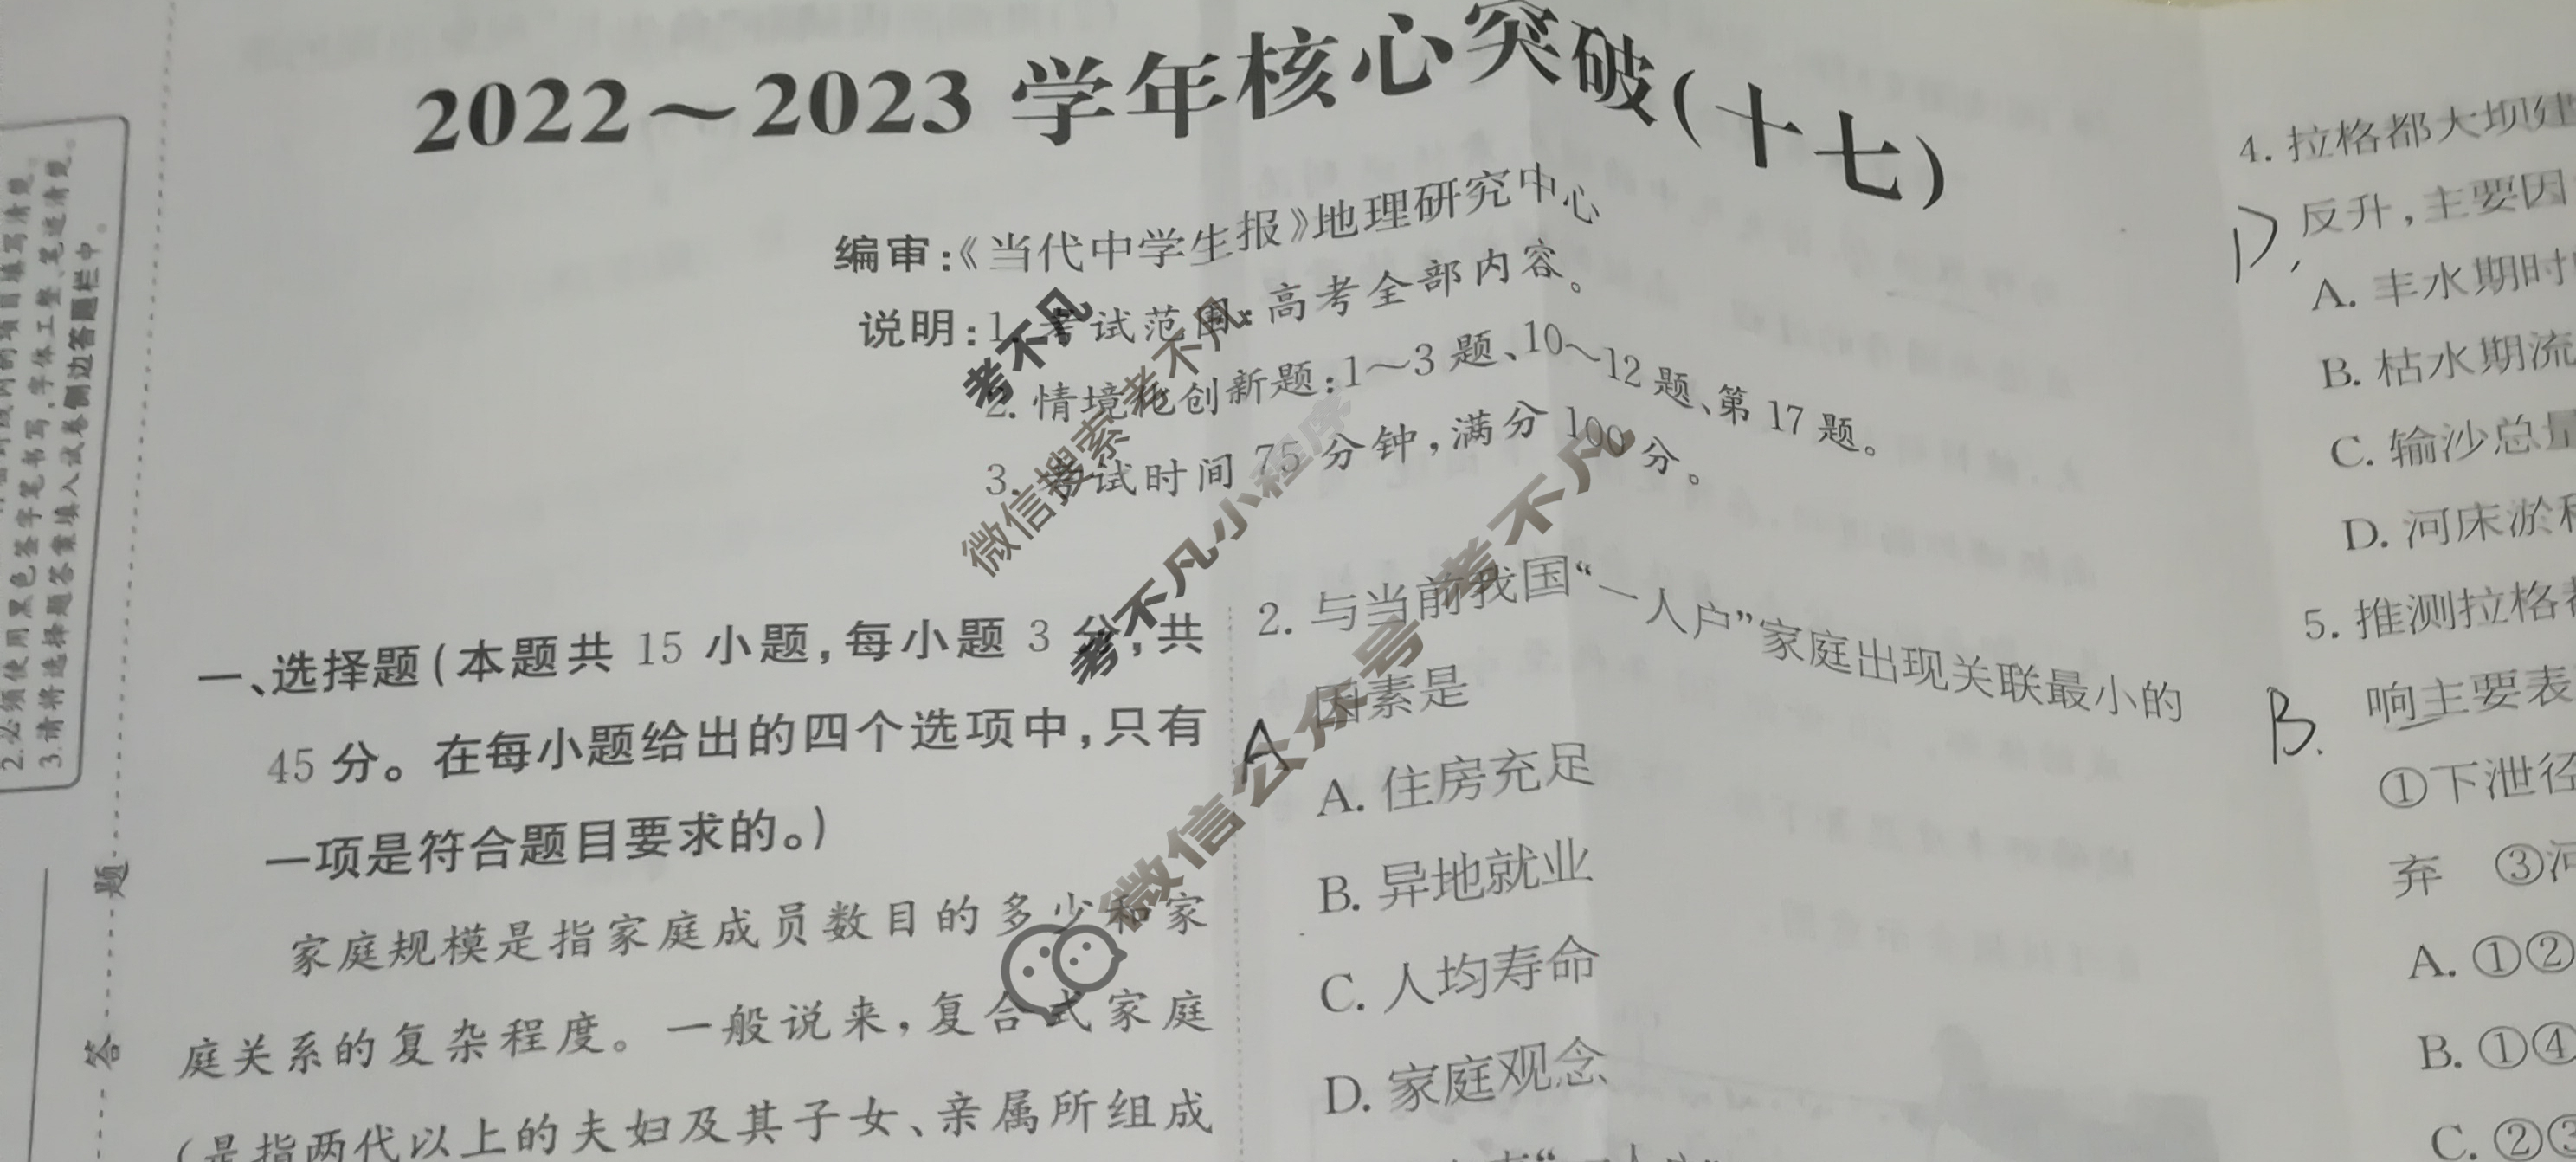 2022～2023 学年核心突破(十七)
编审:《当代中学生报》地理研究中心
说明:1. 考试范围:高考全部内容。
2. 情境化创新题:1～3 题、10～12 题、第 17 题。
3. 考试时间 75 分钟,满分 100 分。
2.必须使用黑色签字笔书写,字体工整、笔迹清楚。
3.请将选择题答案填入试卷侧边答题栏中。
题
答
一、选择题(本题共 15 小题,每小题 3 分,共
45 分。在每小题给出的四个选项中,只有
一项是符合题目要求的。)
家庭规模是指家庭成员数目的多少和家
庭关系的复杂程度。一般说来,复合式家庭
(是指两代以上的夫妇及其子女、亲属所组成
2. 与当前我国“一人户”家庭出现关联最小的
因素是
A
A. 住房充足
B. 异地就业
C. 人均寿命
D. 家庭观念
4. 拉格都大坝建
D. 反升,主要因
A. 丰水期时
B. 枯水期流
C. 输沙总量
D. 河床淤积
5. 推测拉格都
B. 响主要表
①下泄径
弃 ③河
A. ①②
B. ①④
C. ②③
考不凡
微信搜索 考不凡
考不凡小程序
微信公众号 考不凡